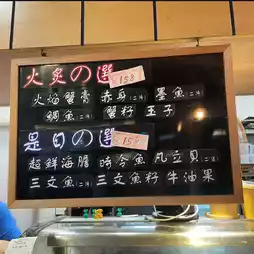 火炙の選 $158
火焰蟹膏 赤身(二件) 墨魚(二件)
鯛魚(二件) 蟹籽 玉子
是日の選 $158
超鮮海膽 時令魚 帆立貝(二件)
三文魚(二件) 三文魚籽 牛油果